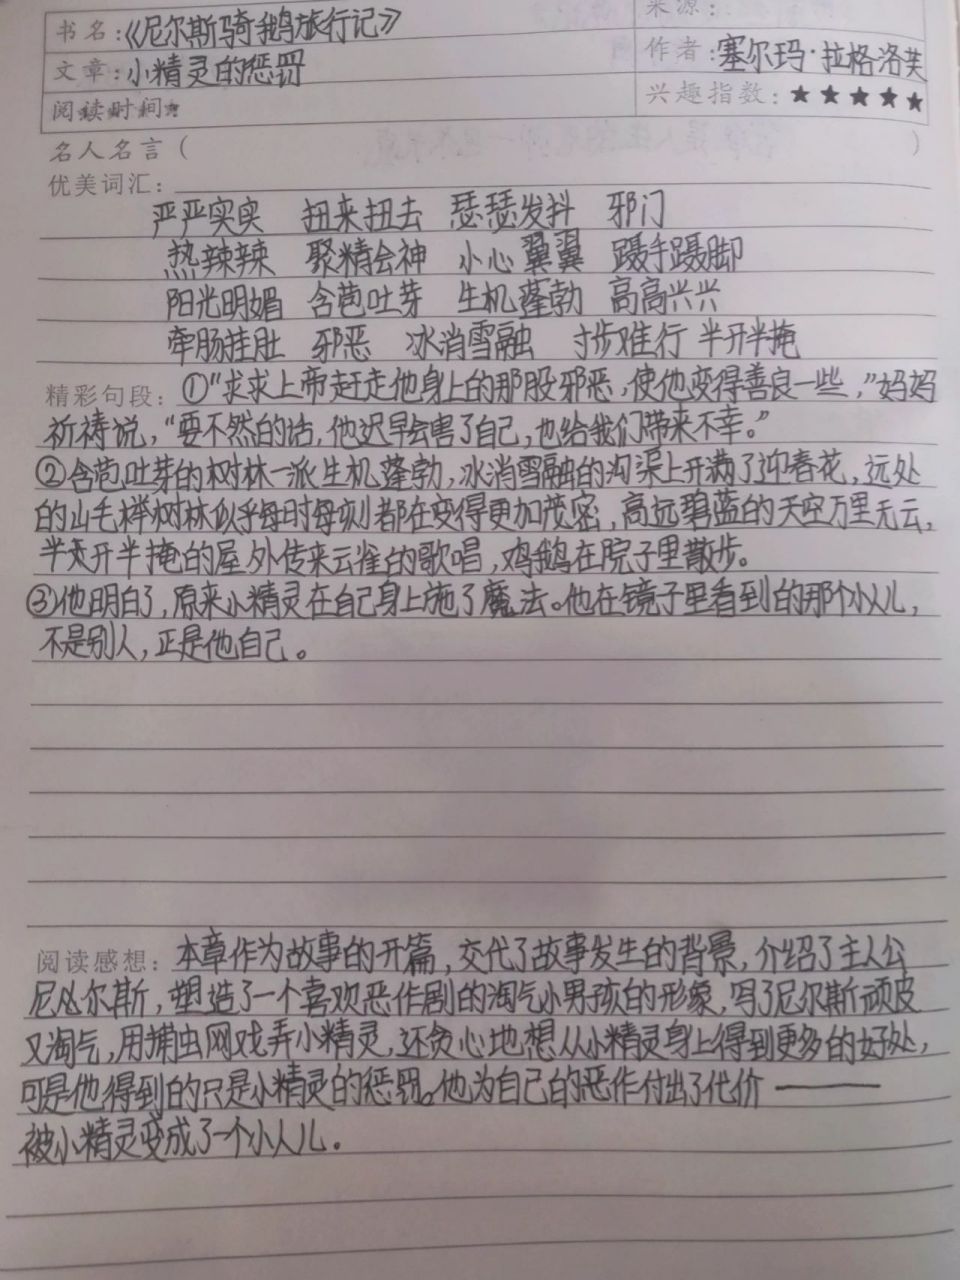 书名：《尼尔斯骑鹅旅行记》 来源：
文章：小精灵的惩罚 作者：塞尔玛·拉格洛芙
阅读时间： 兴趣指数：★★★★★
名人名言（ ）
优美词汇：
严严实实 扭来扭去 瑟瑟发抖 邪门
热辣辣 聚精会神 小心翼翼 蹑手蹑脚
阳光明媚 含苞吐芽 生机蓬勃 高高兴兴
牵肠挂肚 邪恶 冰消雪融 寸步难行 半开半掩
精彩句段：①“求求上帝赶走他身上的那股邪恶，使他变得善良一些，”妈妈
祈祷说，“要不然的话，他迟早会害了自己，也给我们带来不幸。”
②含苞吐芽的树林一派生机蓬勃，冰消雪融的沟渠上开满了迎春花，远处
的山毛榉树林似乎每时每刻都在变得更加茂密，高远碧蓝的天空万里无云，
半开半掩的屋外传来云雀的歌唱，鸡鹅在院子里散步。
③他明白了，原来小精灵在自己身上施了魔法。他在镜子里看到的那个小人儿，
不是别人，正是他自己。
阅读感想：本章作为故事的开篇，交代了故事发生的背景，介绍了主人公
尼尔斯，塑造了一个喜欢恶作剧的淘气小男孩的形象，写了尼尔斯顽皮
又淘气，用捕虫网戏弄小精灵，还贪心地想从小精灵身上得到更多的好处，
可是他得到的只是小精灵的惩罚。他为自己的恶作付出了代价——
被小精灵变成了一个小人儿。